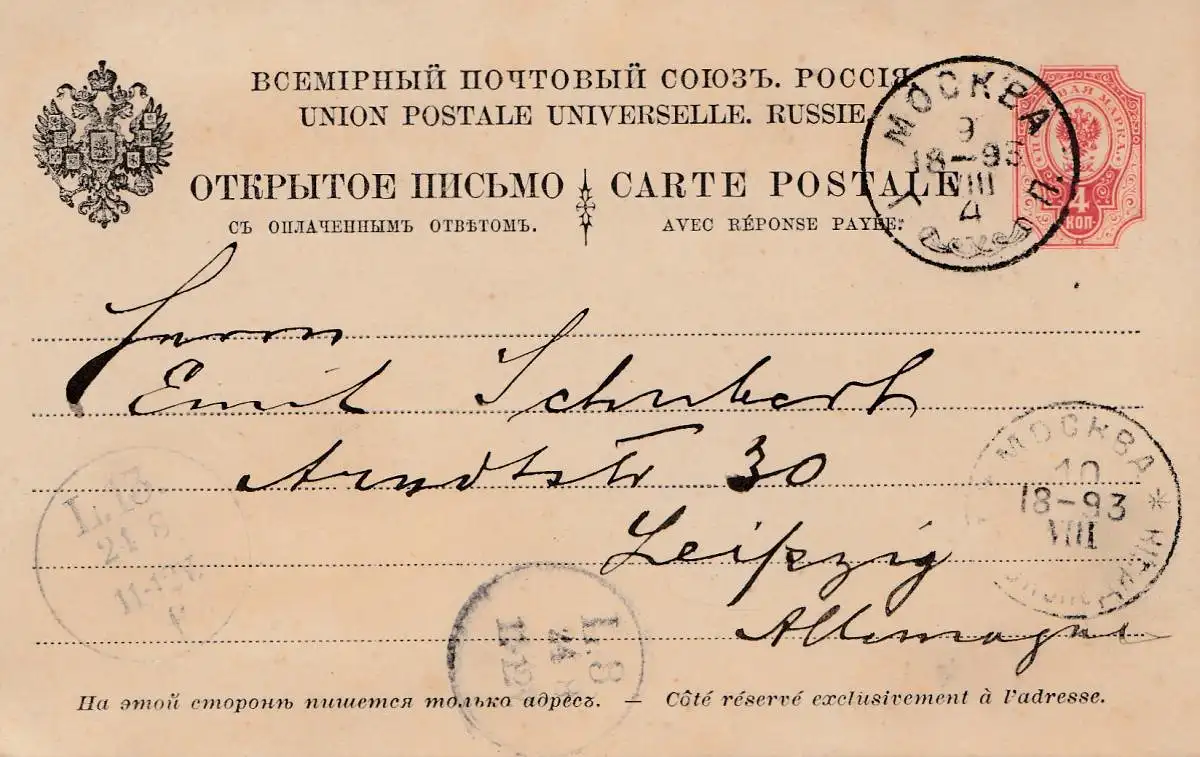 ВСЕМІРНЫЙ ПОЧТОВЫЙ СОЮЗЪ. РОССІЯ
UNION POSTALE UNIVERSELLE. RUSSIE.
ОТКРЫТОЕ ПИСЬМО CARTE POSTALE
СЪ ОПЛАЧЕННЫМЪ ОТВѢТОМЪ. AVEC RÉPONSE PAYÉE.
МОСКВА
9
18-93
VIII
4
ПОЧТОВАЯ МАРКА
4
КОП
Herrn
Emil Schubert
Arndtstr 30
Leipzig
Allemagne
МОСКВА
10
18-93
VIII
L. 13.
21 8
L. 8
На этой сторонѣ пишется только адресъ. — Côté réservé exclusivement à l'adresse.